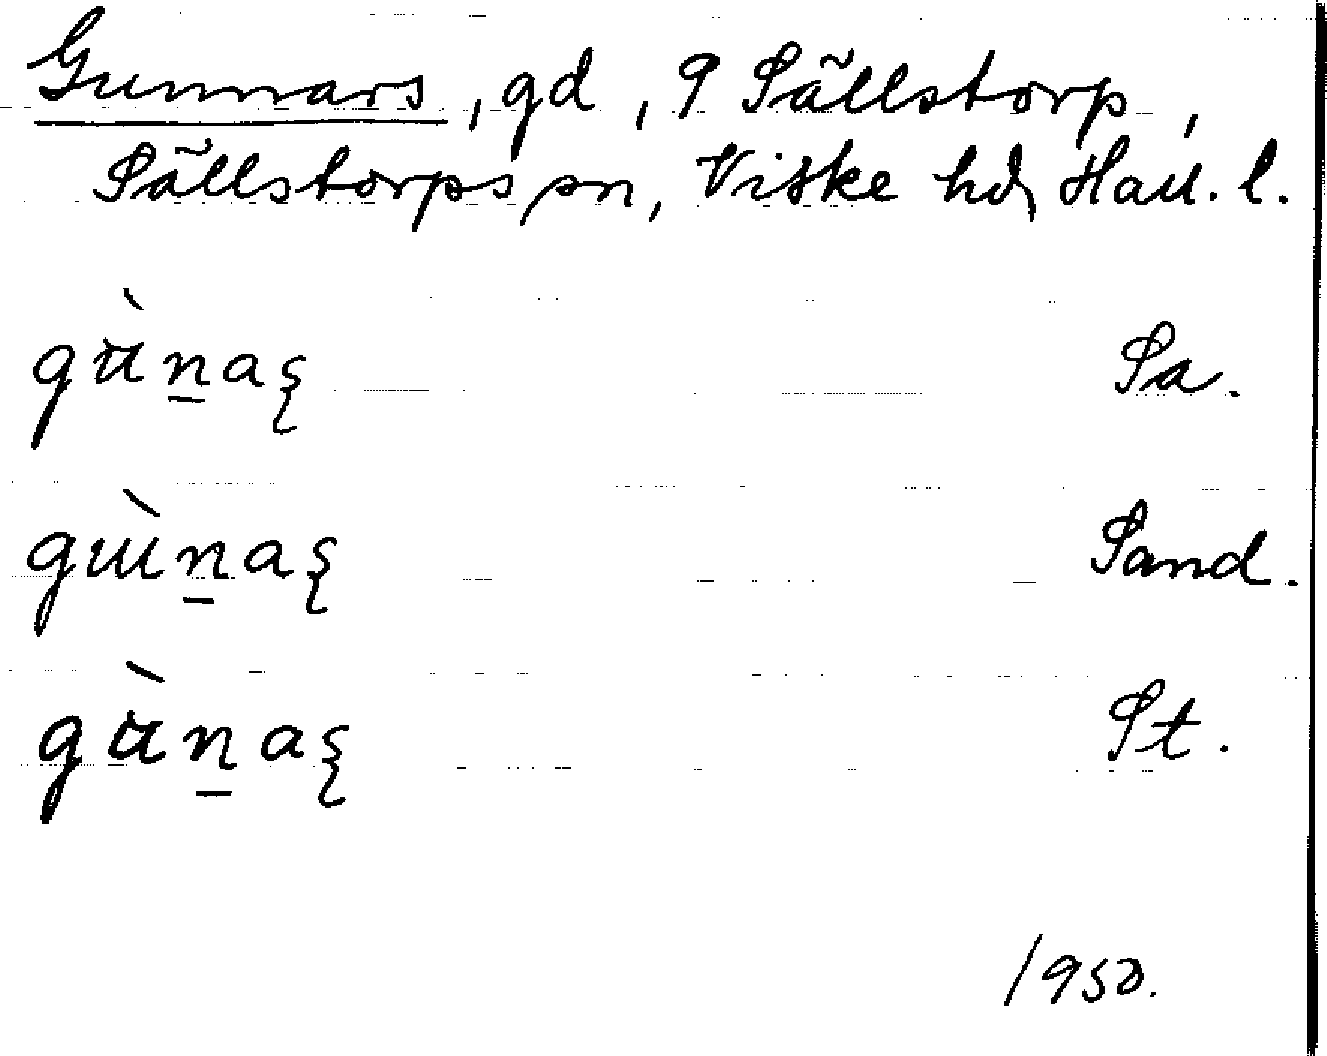 Gunnars, gd, 9 Sällstorp,
Sällstorps sn, Viske hd, Hall. l.
gù̈n̲aş Sa.
gɯ̀n̲aş Sand.
gù̈n̲aş St.
1950.